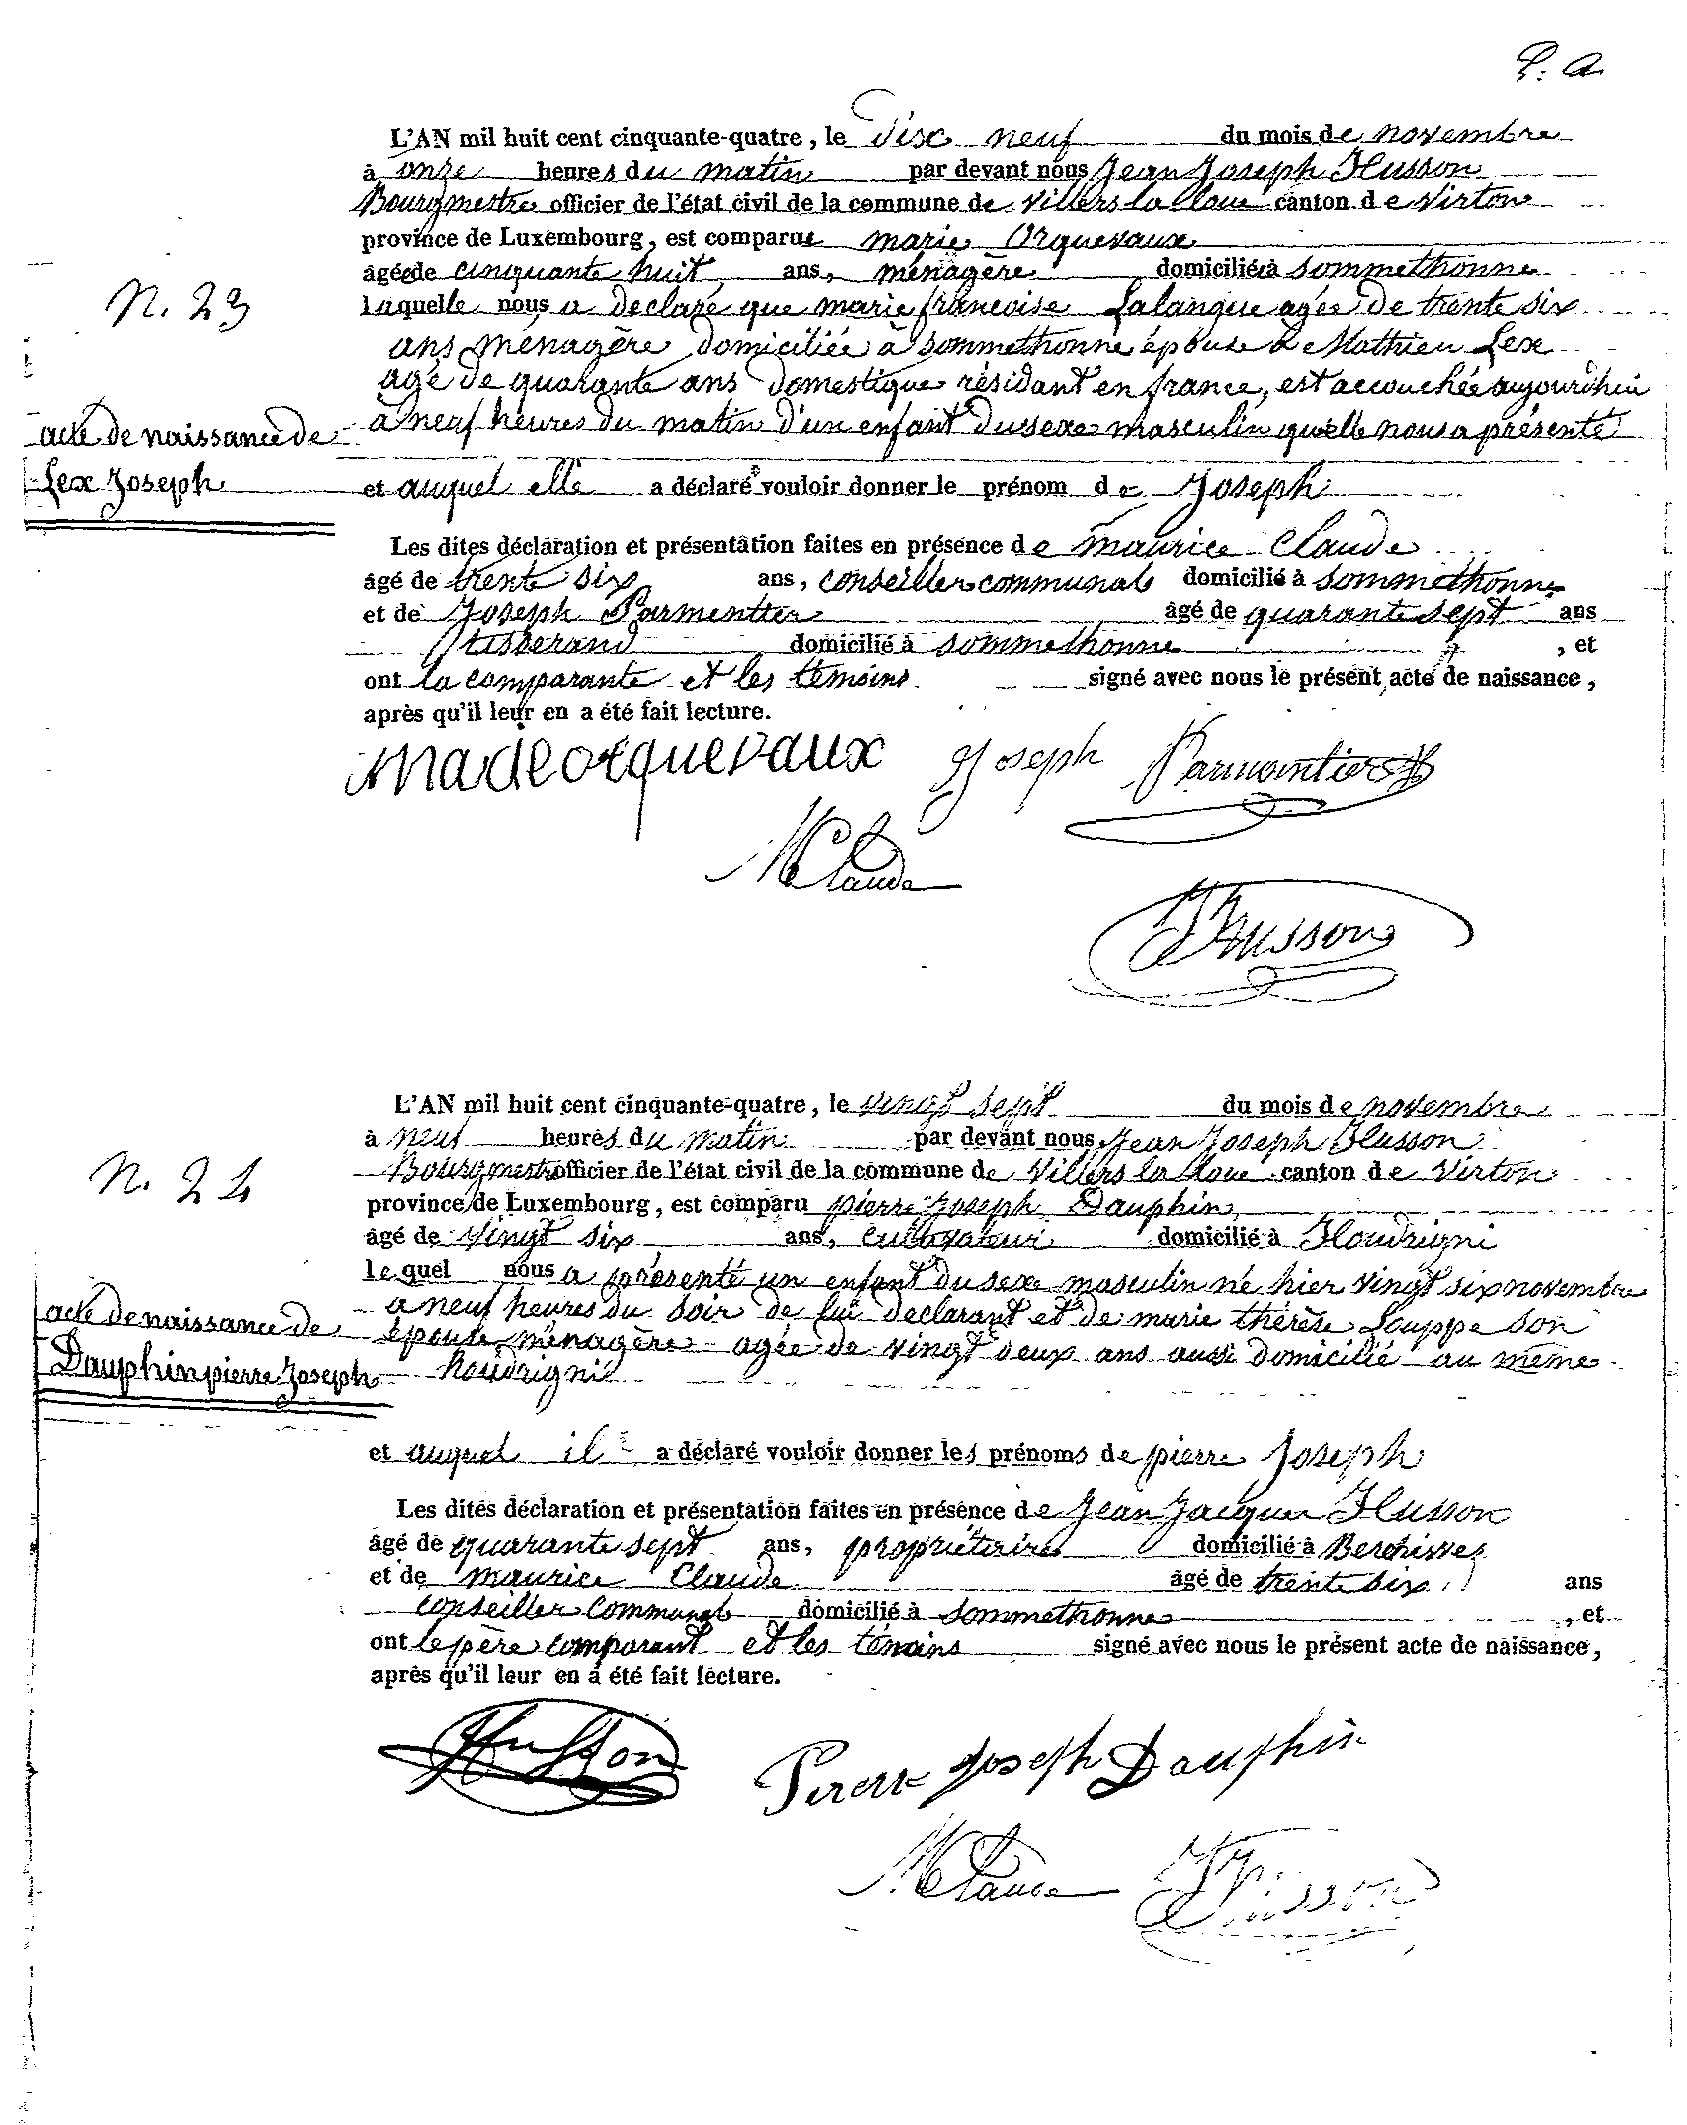 P. A.
L'AN mil huit cent cinquante-quatre, le Dix neuf du mois de novembre
à onze heures du matin par devant nous Jean Joseph Husson
Bourgmestre officier de l'état civil de la commune de Villers la Loue canton de Virton
province de Luxembourg, est comparue marie Orquevaux
âgée de cinquante huit ans, ménagère domiciliée à sommethonne
laquelle nous a declaré que marie françoise Lalangue agée de trente six
N. 23
ans ménagère domiciliée à sommethonne épouse à Mathieu Lex
agé de quarante ans domestique résidant en france, est accouchée aujourd'hui
à neuf heures du matin d'un enfant du sexe masculin quelle nous a présenté
acte de naissance de
Lex Joseph
et auquel elle a déclaré vouloir donner le prénom de Joseph
Les dites déclaration et présentation faites en présence de maurice Claude
âgé de trente six ans, conseiller communal domicilié à sommethonne
et de Joseph Parmentier âgé de quarante sept ans
tisserand domicilié à sommethonne , et
ont la comparante et les témoins signé avec nous le présent acte de naissance,
après qu'il leur en a été fait lecture.
orquevaux Joseph Parmantier
M Claude
JHusson
L'AN mil huit cent cinquante-quatre, le vingt sept du mois de novembre
à neuf heures du matin par devant nous Jean Joseph Husson
Bourgmestre officier de l'état civil de la commune de Villers la Loue canton de Virton
N. 24
province de Luxembourg, est comparu pierre Joseph Dauphin
âgé de vingt six ans, cultivateur domicilié à Houdrigni
lequel nous a présenté un enfant du sexe masculin né hier vingt six novembre
a neuf heures du soir de lui declarant et de marie thérèse Louppe son
acte de naissance de
épouse ménagère agée de vingt deux ans aussi domicilié au même
Dauphin pierre Joseph
houdrigni
et auquel il a déclaré vouloir donner les prénoms de pierre Joseph
Les dites déclaration et présentation faites en présence de Jean Jacques Husson
âgé de quarante sept ans, propriétaire domicilié à Berchiwez
et de maurice Claude âgé de trente six ans
conseiller communal domicilié à sommethonne , et
ont le père comparant et les témoins signé avec nous le présent acte de naissance,
après qu'il leur en a été fait lecture.
Husson Pierre Joseph Dauphin
M Claude JHusson